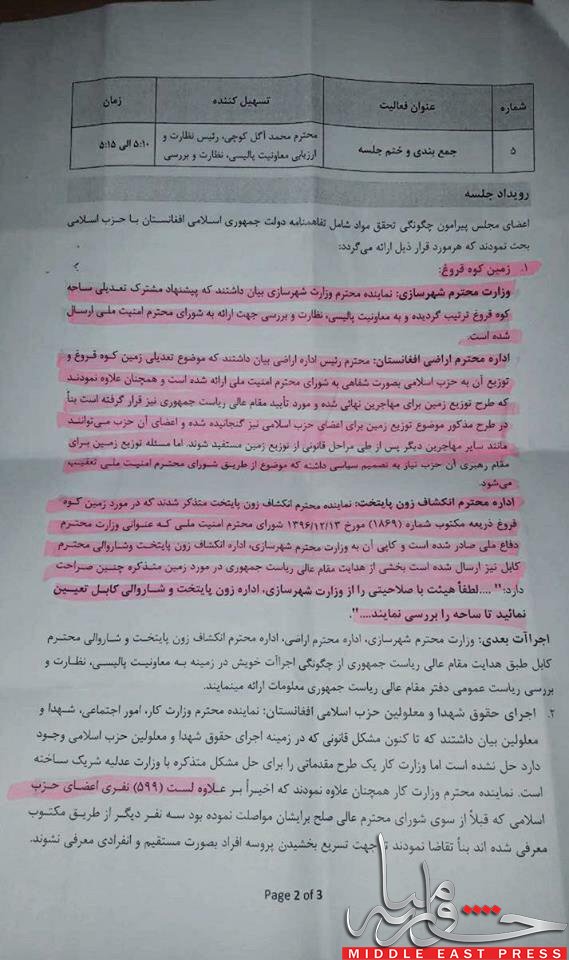 شماره عنوان فعالیت تسهیل کننده زمان
۵ جمع بندی و ختم جلسه محترم محمد آگل کوچی، رئیس نظارت و ارزیابی معاونیت پالیسی، نظارت و بررسی ۵:۱۰ الی ۵:۱۵
رویداد جلسه
اعضای مجلس پیرامون چگونگی تحقق مواد شامل تفاهمنامه دولت جمهوری اسلامی افغانستان با حزب اسلامی
بحث نمودند که هرمورد قرار ذیل ارائه می‌گردد:
۱. زمین کوه قروغ:
وزارت محترم شهرسازی: نماینده محترم وزارت شهرسازی بیان داشتند که پیشنهاد مشترک تعدیلی ساحه
کوه قروغ ترتیب گردیده و به معاونیت پالیسی، نظارت و بررسی جهت ارائه به شورای محترم امنیت ملی ارسال
شده است.
اداره محترم اراضی افغانستان: محترم رئیس اداره اراضی بیان داشتند که موضوع تعدیلی زمین کوه قروغ و
توزیع آن به حزب اسلامی بصورت شفاهی به شورای محترم امنیت ملی ارائه شده است و همچنان علاوه نمودند
که طرح توزیع زمین برای مهاجرین نهائی شده و مورد تأیید مقام عالی ریاست جمهوری نیز قرار گرفته است بناً
در طرح مذکور موضوع توزیع زمین برای اعضای حزب اسلامی نیز گنجانیده شده و اعضای آن حزب می‌توانند
مانند سایر مهاجرین دیگر پس از طی مراحل قانونی از توزیع زمین مستفید شوند. اما مسئله توزیع زمین برای
مقام رهبری آن حزب نیاز به تصمیم سیاسی داشته که موضوع از طریق شورای محترم امنیت ملی تعقیب
می‌شود.
اداره محترم انکشاف زون پایتخت: نماینده محترم انکشاف زون پایتخت متذکر شدند که در مورد زمین کوه
قروغ ذریعه مکتوب شماره (۱۸۶۹) مورخ ۱۳۹۶/۱۲/۱۳ شورای محترم امنیت ملی که عنوانی وزارت محترم
دفاع ملی صادر شده است و کاپی آن به وزارت محترم شهرسازی، اداره انکشاف زون پایتخت وشاروالی محترم
کابل نیز ارسال شده است بخشی از هدایت مقام عالی ریاست جمهوری در مورد زمین متذکره چنین صراحت
دارد: "....لطفاً هیئت با صلاحیتی را از وزارت شهرسازی، اداره زون پایتخت و شاروالی کابل تعیین
نمائید تا ساحه را بررسی نمایند....".
اجراآت بعدی: وزارت محترم شهرسازی، اداره محترم اراضی، اداره محترم انکشاف زون پایتخت و شاروالی محترم
کابل طبق هدایت مقام عالی ریاست جمهوری از چگونگی اجراآت خویش در زمینه به معاونیت پالیسی، نظارت و
بررسی ریاست عمومی دفتر مقام عالی ریاست جمهوری معلومات ارائه مینمایند.
۲. اجرای حقوق شهدا و معلولین حزب اسلامی افغانستان: نماینده محترم وزارت کار، امور اجتماعی، شهدا و
معلولین بیان داشتند که تا کنون مشکل قانونی که در زمینه اجرای حقوق شهدا و معلولین حزب اسلامی وجود
دارد حل نشده است اما وزارت کار یک طرح مقدماتی را برای حل مشکل متذکره با وزارت عدلیه شریک ساخته
است. نماینده محترم وزارت کار همچنان علاوه نمودند که اخیراً بر علاوه لست (۵۹۹) نفری اعضای حزب
اسلامی که قبلاً از سوی شورای محترم عالی صلح برایشان مواصلت نموده بود سه نفر دیگر از طریق مکتوب
معرفی شده اند بناً تقاضا نمودند تا جهت تسریع بخشیدن پروسه افراد بصورت مستقیم و انفرادی معرفی نشوند.
Page 2 of 3
MIDDLE EAST PRESS